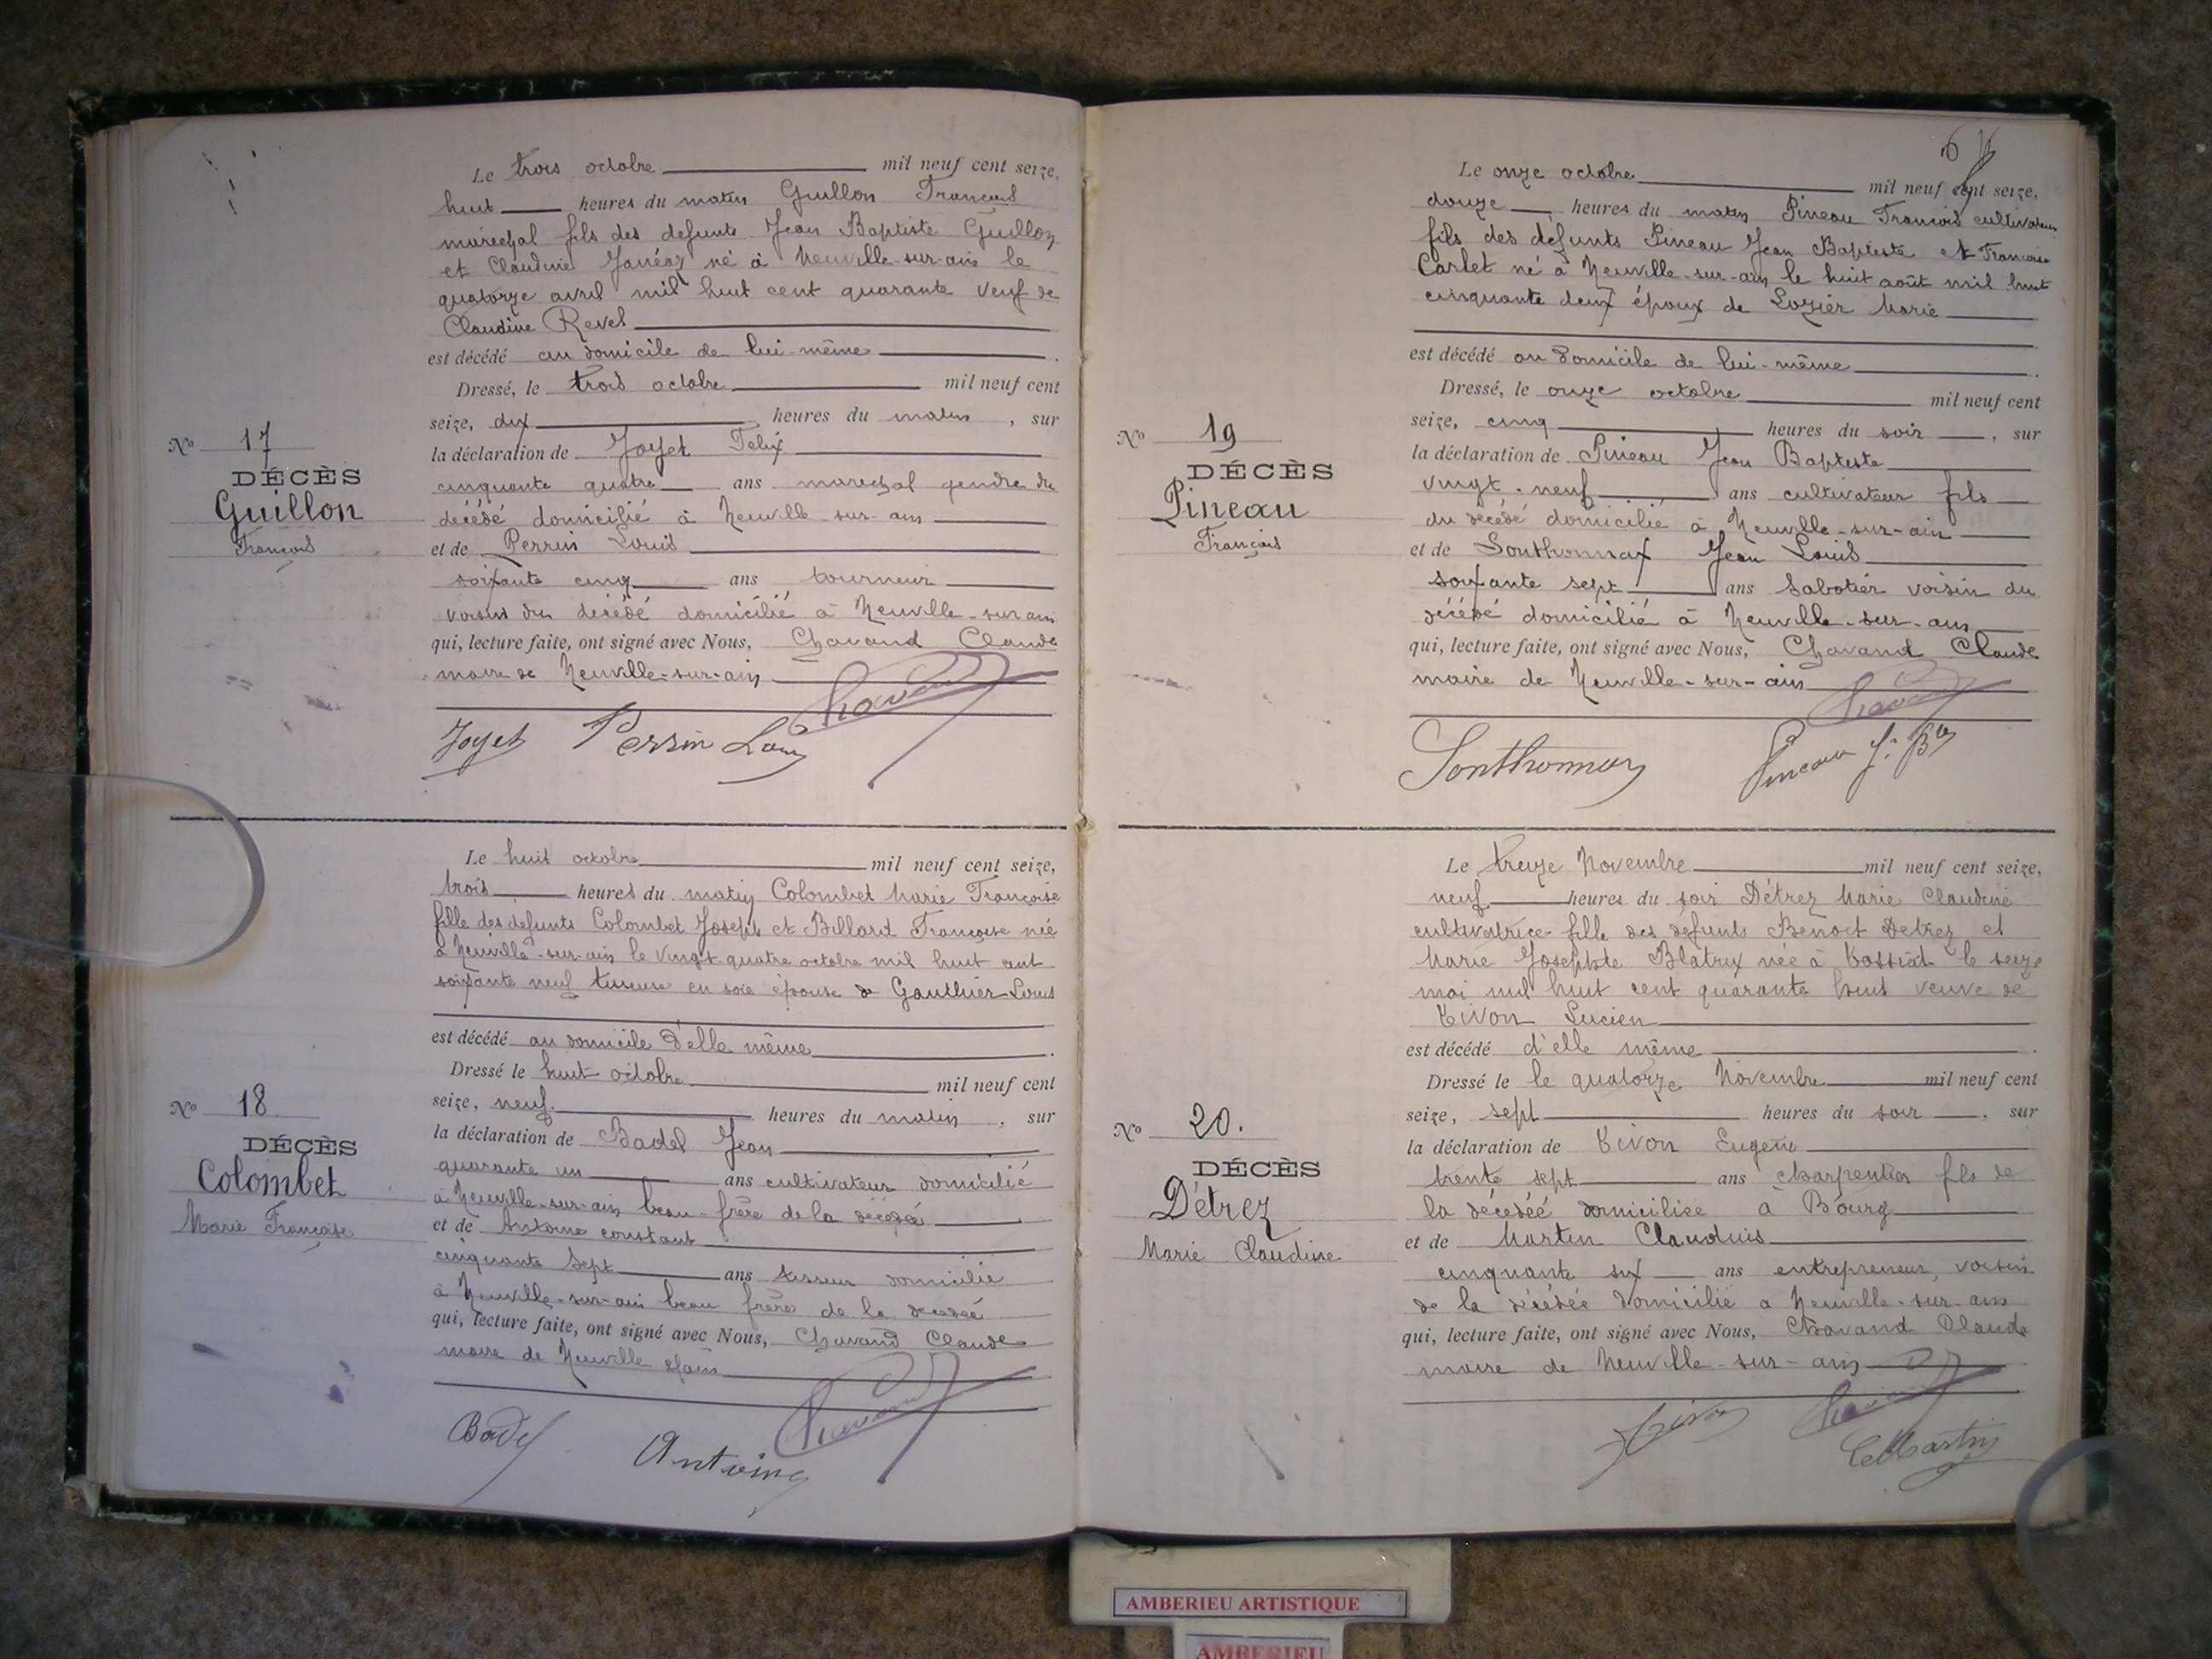 Le trois octobre mil neuf cent seize,
huit heures du matin Guillon François
maréchal fils des defunts Jean Baptiste Guillon
et Claudine Janéaz né à Neuville-sur-ain le
quatorze avril mil huit cent quarante veuf de
Claudine Revel
est décédé au domicile de lui-même .
Dressé, le trois octobre mil neuf cent
seize, dix heures du matin , sur
la déclaration de Joyet Felix
cinquante quatre ans marechal gendre du
décédé domicilié à Neuville-sur-ain
et de Perrin Louis
soixante cinq ans tourneur
voisin du décédé domicilié à Neuville-sur ain
qui, lecture faite, ont signé avec Nous, Chavand Claude
maire de Neuville-sur-ain
Joyet Perrin Louis Chavand
No 17
DÉCÈS
Guillon
François
Le huit octobre mil neuf cent seize,
trois heures du matin Colombet Marie Françoise
fille des defunts Colombet Joseph et Billard Françoise née
à Neuville-sur-ain le vingt-quatre octobre mil huit cent
soixante neuf tisseuse en soie épouse de Gauthier Louis
est décédé au domicile d'elle même .
Dressé le huit octobre mil neuf cent
seize, neuf. heures du matin , sur
la déclaration de Badel Jean
quarante un ans cultivateur domicilié
à Neuville-sur-ain beau-frère de la décédée
et de Antoine constant
cinquante sept ans tisseur domicilié
à Neuville-sur-ain beau frère de la decedeé
qui, lecture faite, ont signé avec Nous, Chavand Claude
maire de Neuville s/ain
Badel Antoine Chavand
No 18
DÉCÈS
Colombet
Marie Françoise
Le onze octobre mil neuf cent seize,
douze heures du matin Pineau François cultivateur
fils des défunts Pineau Jean Baptiste et Francoise
Carlet né à Neuville-sur-ain le huit août mil huit
cinquante deux époux de Lozier Marie
est décédé au domicile de lui-même .
Dressé, le onze octobre mil neuf cent
seize, cinq heures du soir , sur
la déclaration de Pineau Jean Baptiste
vingt-neuf ans cultivateur fils
du décédé domicilié à Neuville-sur-ain
et de Sonthonnax Jean Louis
soixante sept ans Sabotier voisin du
décédé domicilié à Neuville-sur-ain
qui, lecture faite, ont signé avec Nous, Chavand Claude
maire de Neuville-sur-ain
Sonthonnax Pineau J. Bte Chavand
No 19
DÉCÈS
Pineau
François
Le treize Novembre mil neuf cent seize,
neuf heures du soir Détrez Marie Claudine
cultivatrice fille des défunts Benoit Detrez et
Marie Josephte Blatrix née à Bossiat le seize
mai mil huit cent quarante huit veuve de
Tivon Lucien
est décédé d'elle même .
Dressé le le quatorze Novembre mil neuf cent
seize, sept heures du soir , sur
la déclaration de Tivon Eugene
trente sept ans charpentier fils de
la décédeé domiciliée à Bourg
et de Martin Claudius
cinquante six ans entrepreneur, voisin
de la décédée domicilié a Neuville-sur-ain
qui, lecture faite, ont signé avec Nous, Chavand Claude
maire de Neuville-sur-ain
Tivon Chavand C Martin
No 20.
DÉCÈS
Détrez
Marie Claudine
AMBERIEU ARTISTIQUE
AMBERIEU